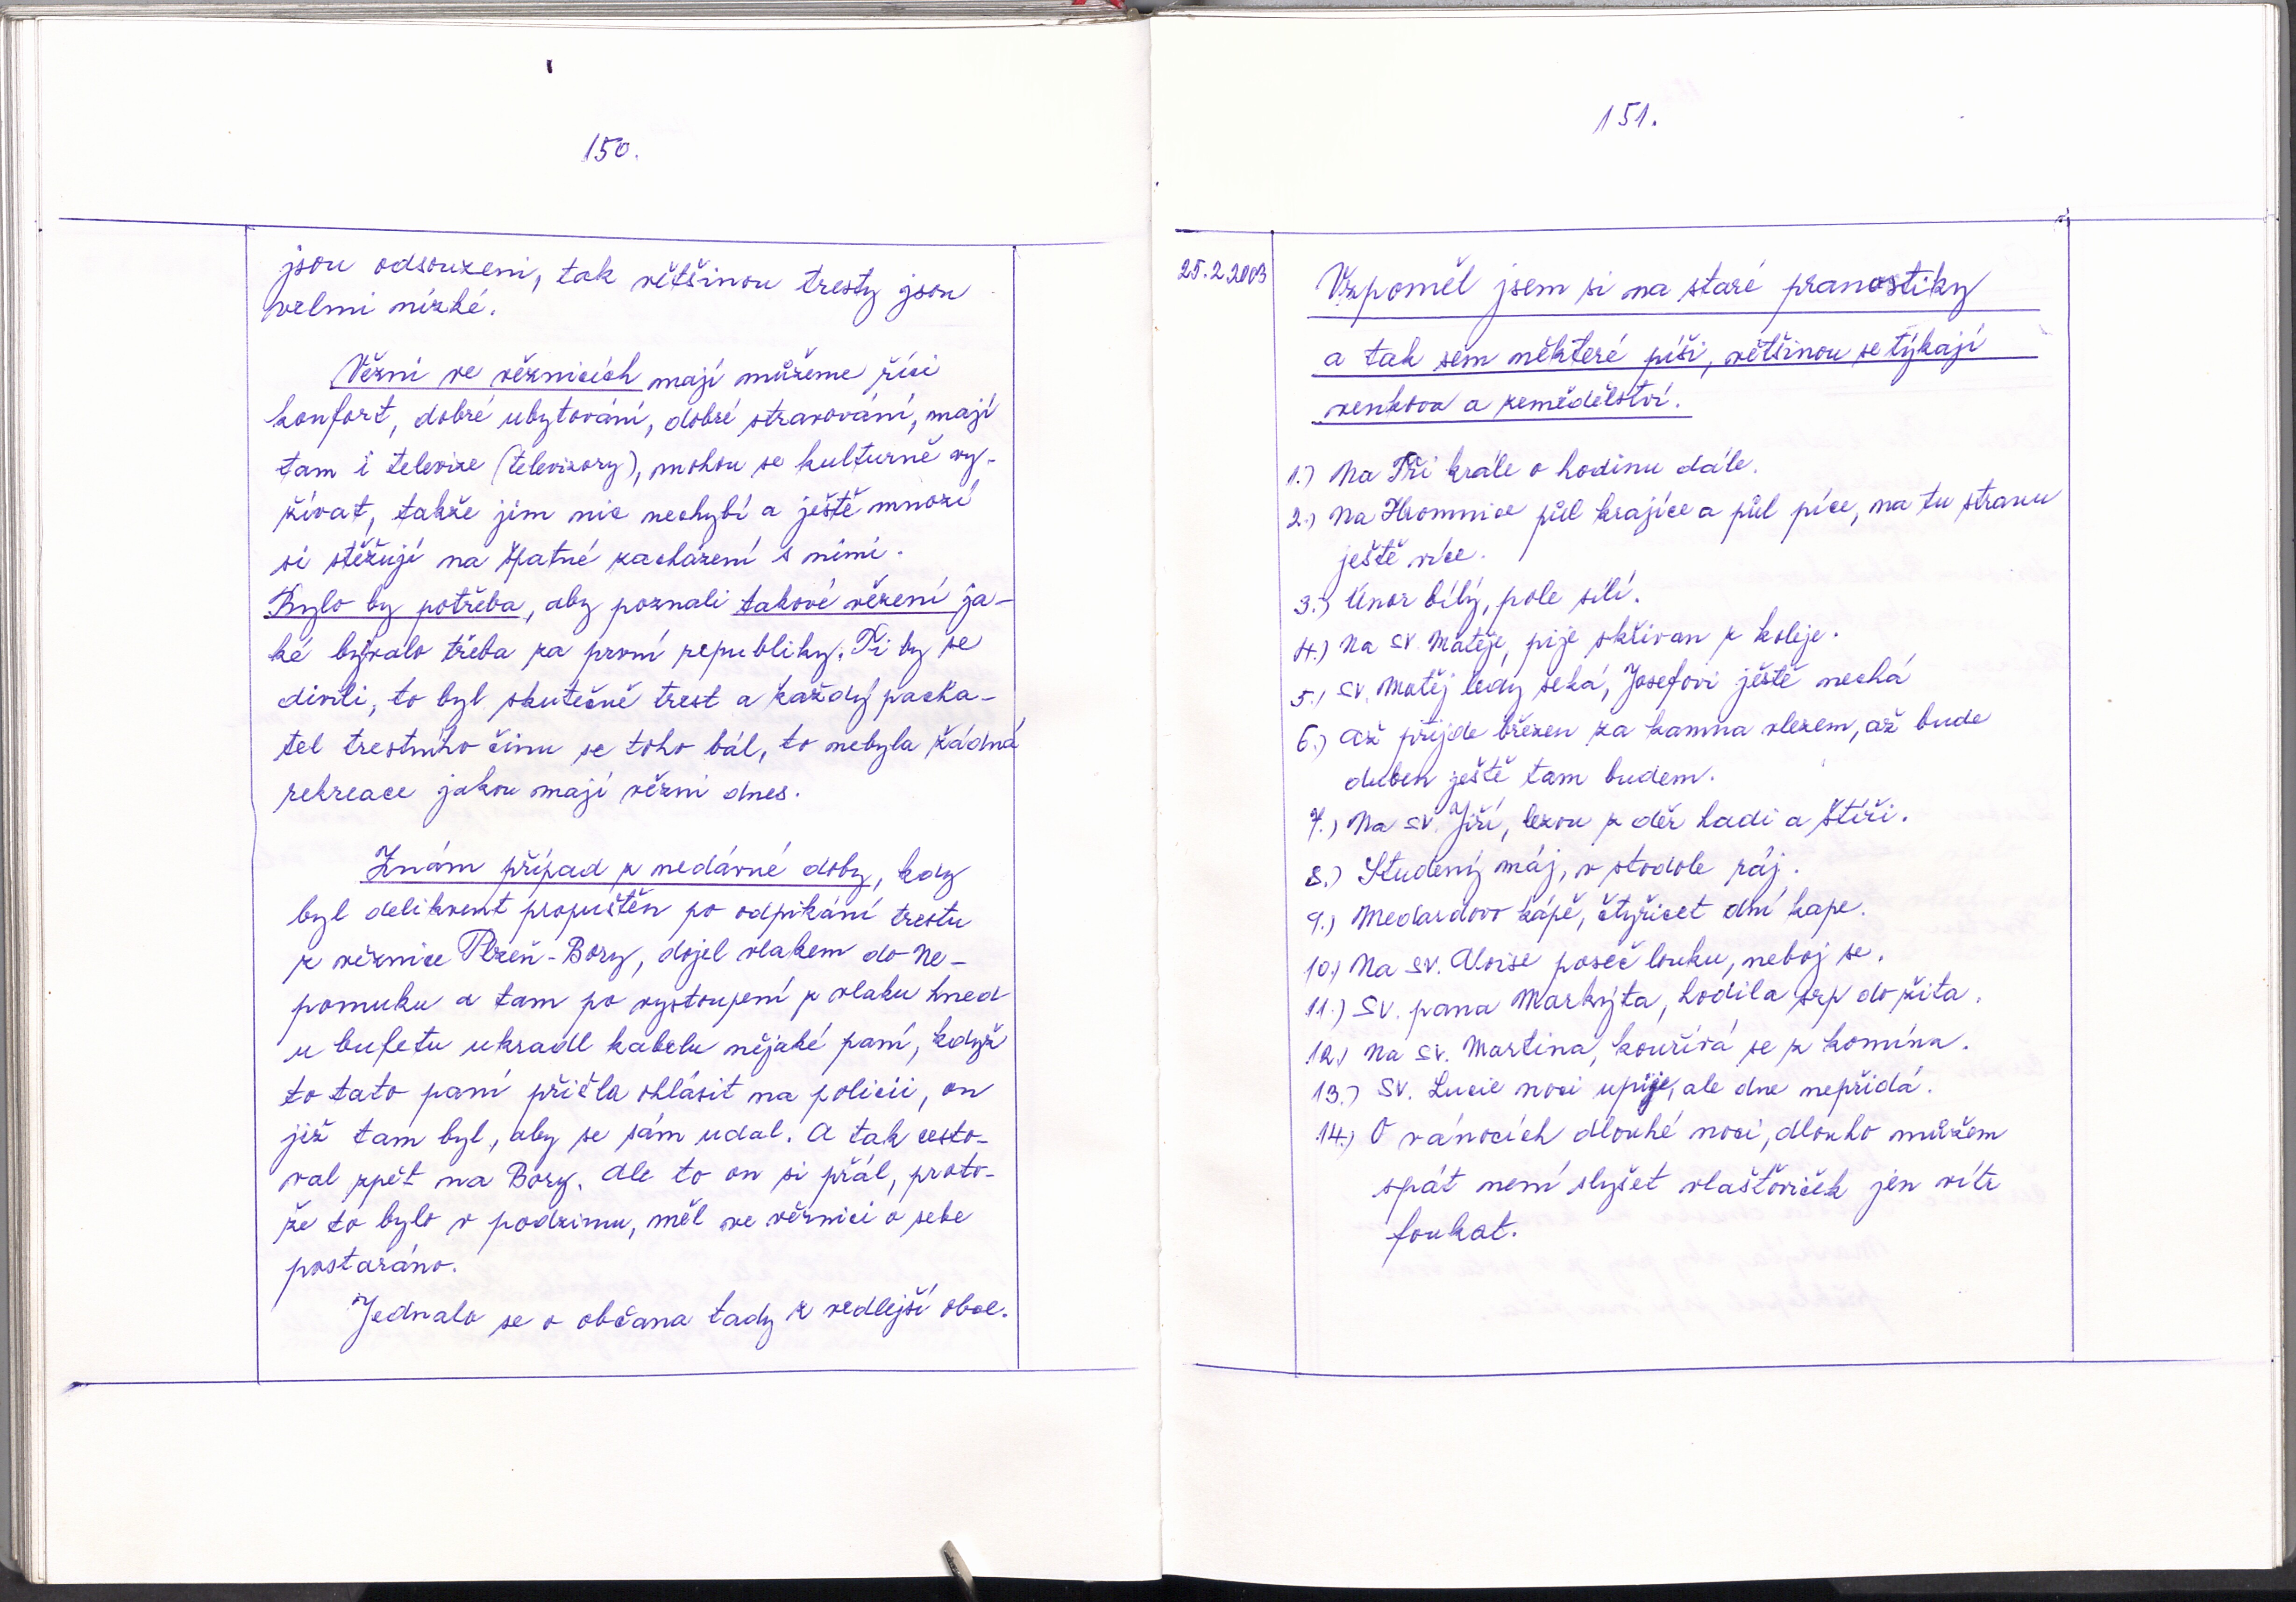 150.
jsou odsouzeni, tak většinou tresty jsou
velmi nízké.
Vězni ve věznicích mají můžeme říci
konfort, dobré ubytování, dobré stravování, mají
tam i televize (televizory), mohou se kulturně vy-
žívat, takže jim nic nechybí a ještě mnozí
si stěžují na špatné zacházení s nimi.
Bylo by potřeba, aby poznali takové vězení ja-
ké bývalo třeba za první republiky. Ti by se
divili, to byl skutečně trest a každý pacha-
tel trestního činu se toho bál, to nebyla žádná
rekreace jakou mají vězni dnes.
Znám případ z nedávné doby, kdy
byl delikvent propuštěn po odpikání trestu
z věznice Plzeň-Bory, dojel vlakem do Ne-
pomuku a tam po vystoupení z vlaku hned
u bufetu ukradl kabelu nějaké paní, když
to tato paní přišla ohlásit na policii, on
již tam byl, aby se sám udal. A tak cesto-
val zpět na Bory. Ale to on si přál, proto-
že to bylo v podzimu, měl ve věznici o sebe
postaráno.
Jednalo se o občana tady z vedlejší obce.
151.
25.2.2003
Vzpoměl jsem si na staré pranostiky
a tak sem některé píši, většinou se týkají
venkova a zemědělství.
1.) Na Tři krále o hodinu dále.
2.) Na Hromnice půl krajíce a půl píce, na tu stranu
ještě více.
3.) Únor bílý, pole sílí.
4.) Na sv. Matěje, pije skřivan z koleje.
5.) Sv. Matěj ledy seká, Josefovi ještě nechá
6.) Až přijde březen za kamna vlezem, až bude
duben ještě tam budem.
7.) Na sv. Jiří, lezou z děr hadi a štíři.
8.) Studený máj, v stodole ráj.
9.) Medardovo kápě, čtyřicet dní kape.
10.) Na sv. Aloise poseč louku, neboj se.
11.) Sv. pana Markýta, hodila srp do žita.
12.) Na sv. Martina, kouřívá se z komína.
13.) Sv. Lucie noci upije, ale dne nepřidá.
14.) O vánocích dlouhé noci, dlouho můžem
spát není slyšet vlaštoviček jen vítr
foukat.